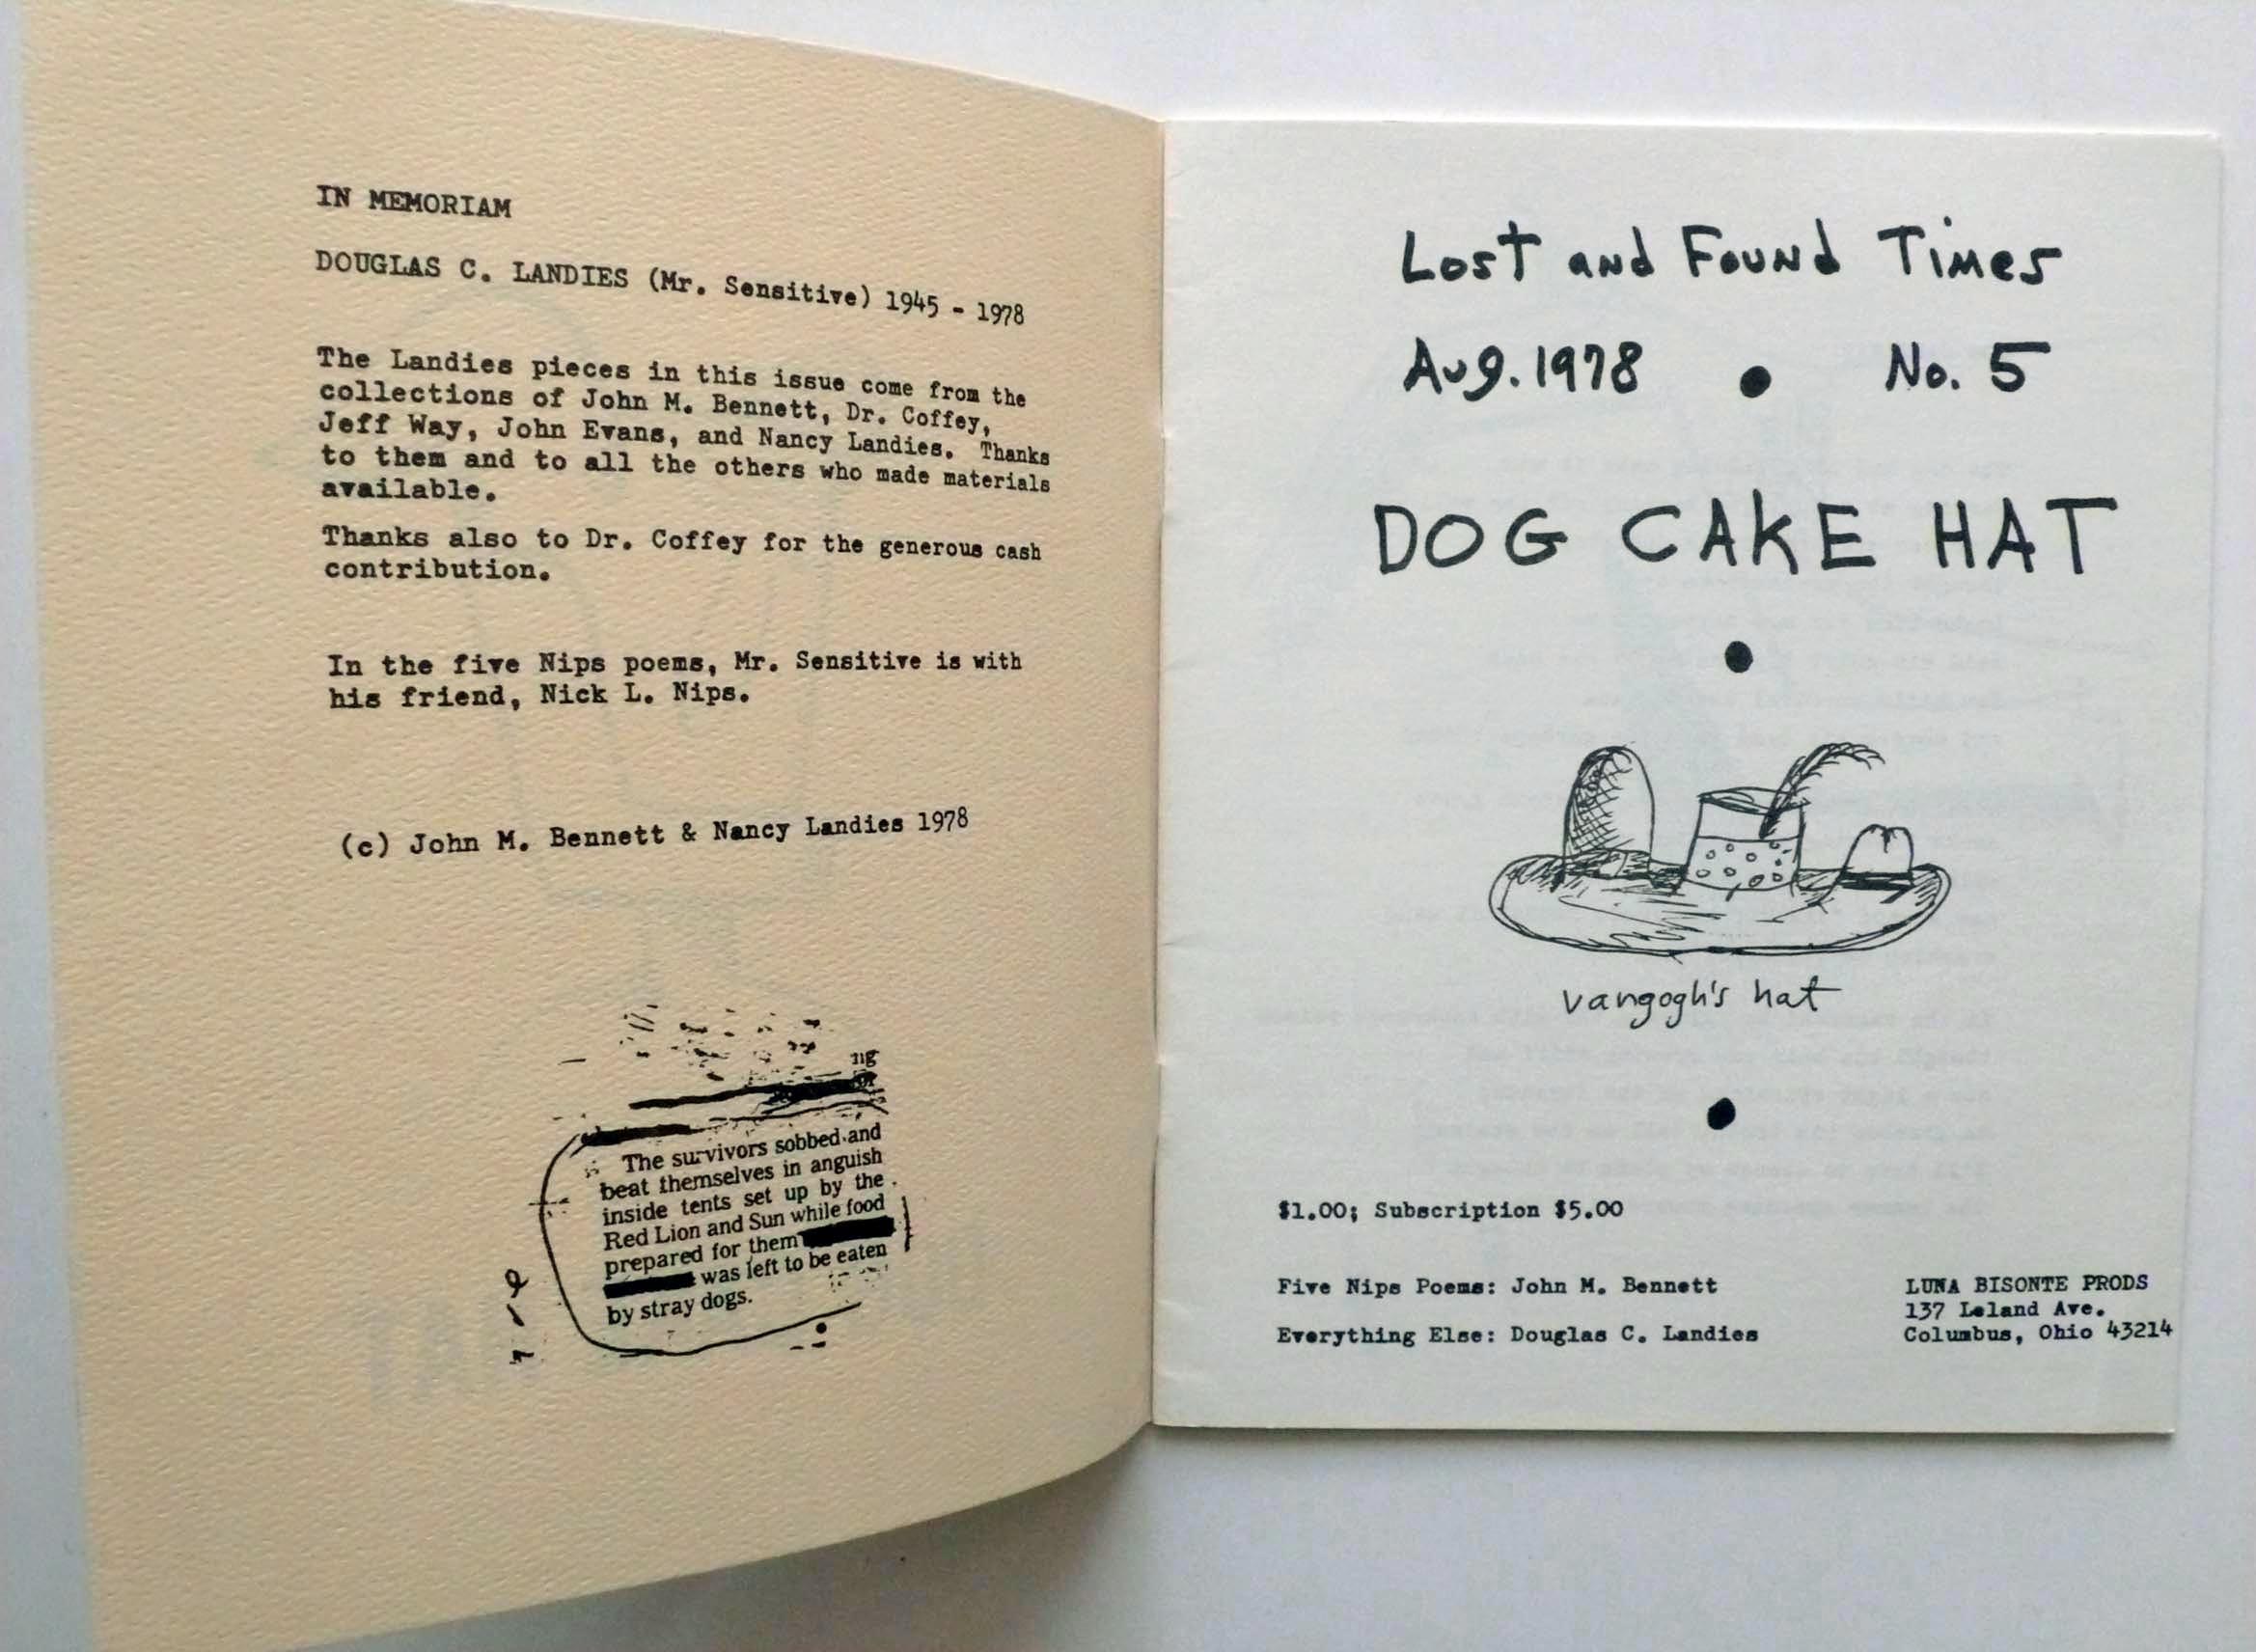 IN MEMORIAM
DOUGLAS C. LANDIES (Mr. Sensitive) 1945 - 1978
The Landies pieces in this issue come from the
collections of John M. Bennett, Dr. Coffey,
Jeff Way, John Evans, and Nancy Landies. Thanks
to them and to all the others who made materials
available.
Thanks also to Dr. Coffey for the generous cash
contribution.
In the five Nips poems, Mr. Sensitive is with
his friend, Nick L. Nips.
(c) John M. Bennett & Nancy Landies 1978
ng
The survivors sobbed and
beat themselves in anguish
inside tents set up by the
Red Lion and Sun while food
prepared for them
was left to be eaten
by stray dogs.
Lost and Found Times
Aug. 1978 • No. 5
DOG CAKE HAT
•
vangogh's hat
•
$1.00; Subscription $5.00
Five Nips Poems: John M. Bennett
Everything Else: Douglas C. Landies
LUNA BISONTE PRODS
137 Leland Ave.
Columbus, Ohio 43214